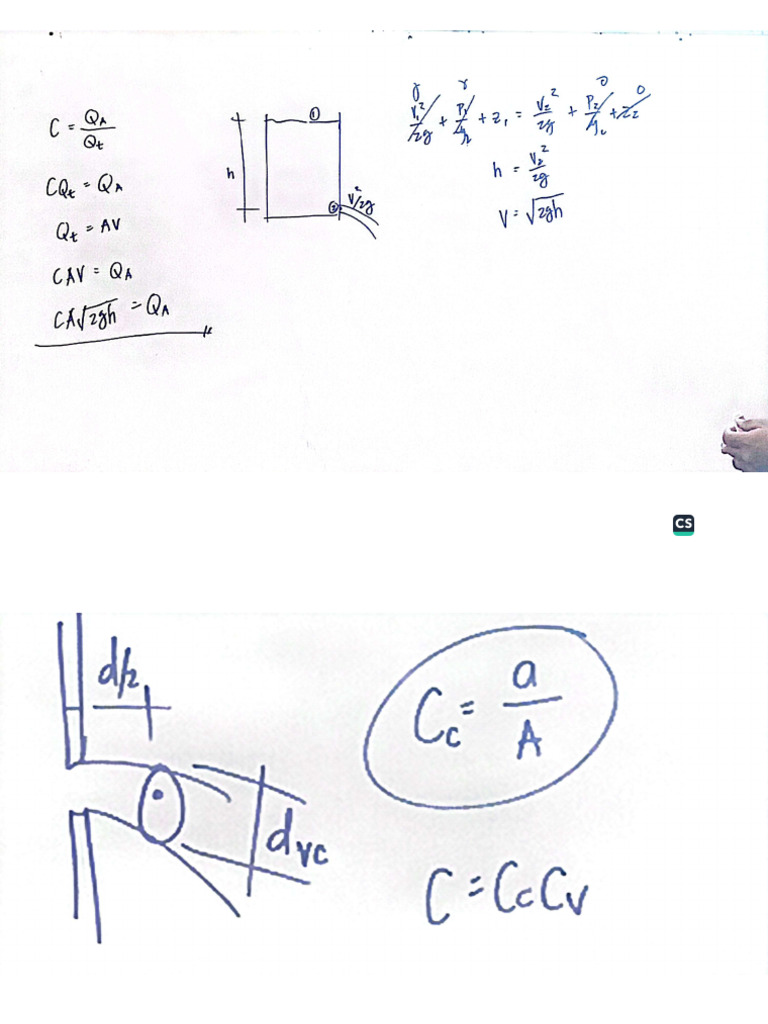 C = Q_A / Q_t
CQ_t = Q_A
Q_t = AV
CAV = Q_A
CA√2gh = Q_A
①
h
②
V²/2g
V₁²/2g + P₁/ + z₁ = V₂²/2g + P₂/ + z₂
0
0
h = V₂²/2g
V = √2gh
CS
d/2
d_vc
C_c = a / A
C = C_c C_v